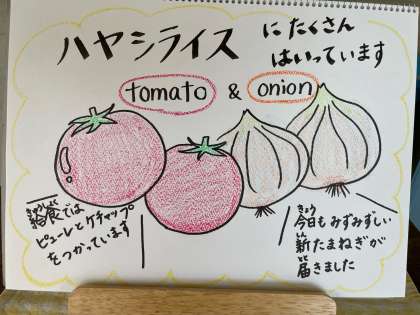 ハヤシライス
にたくさん
はいっています
tomato & onion
給食では
ピューレとケチャップ
をつかっています
今日もみずみずしい
新たまねぎが
届きました